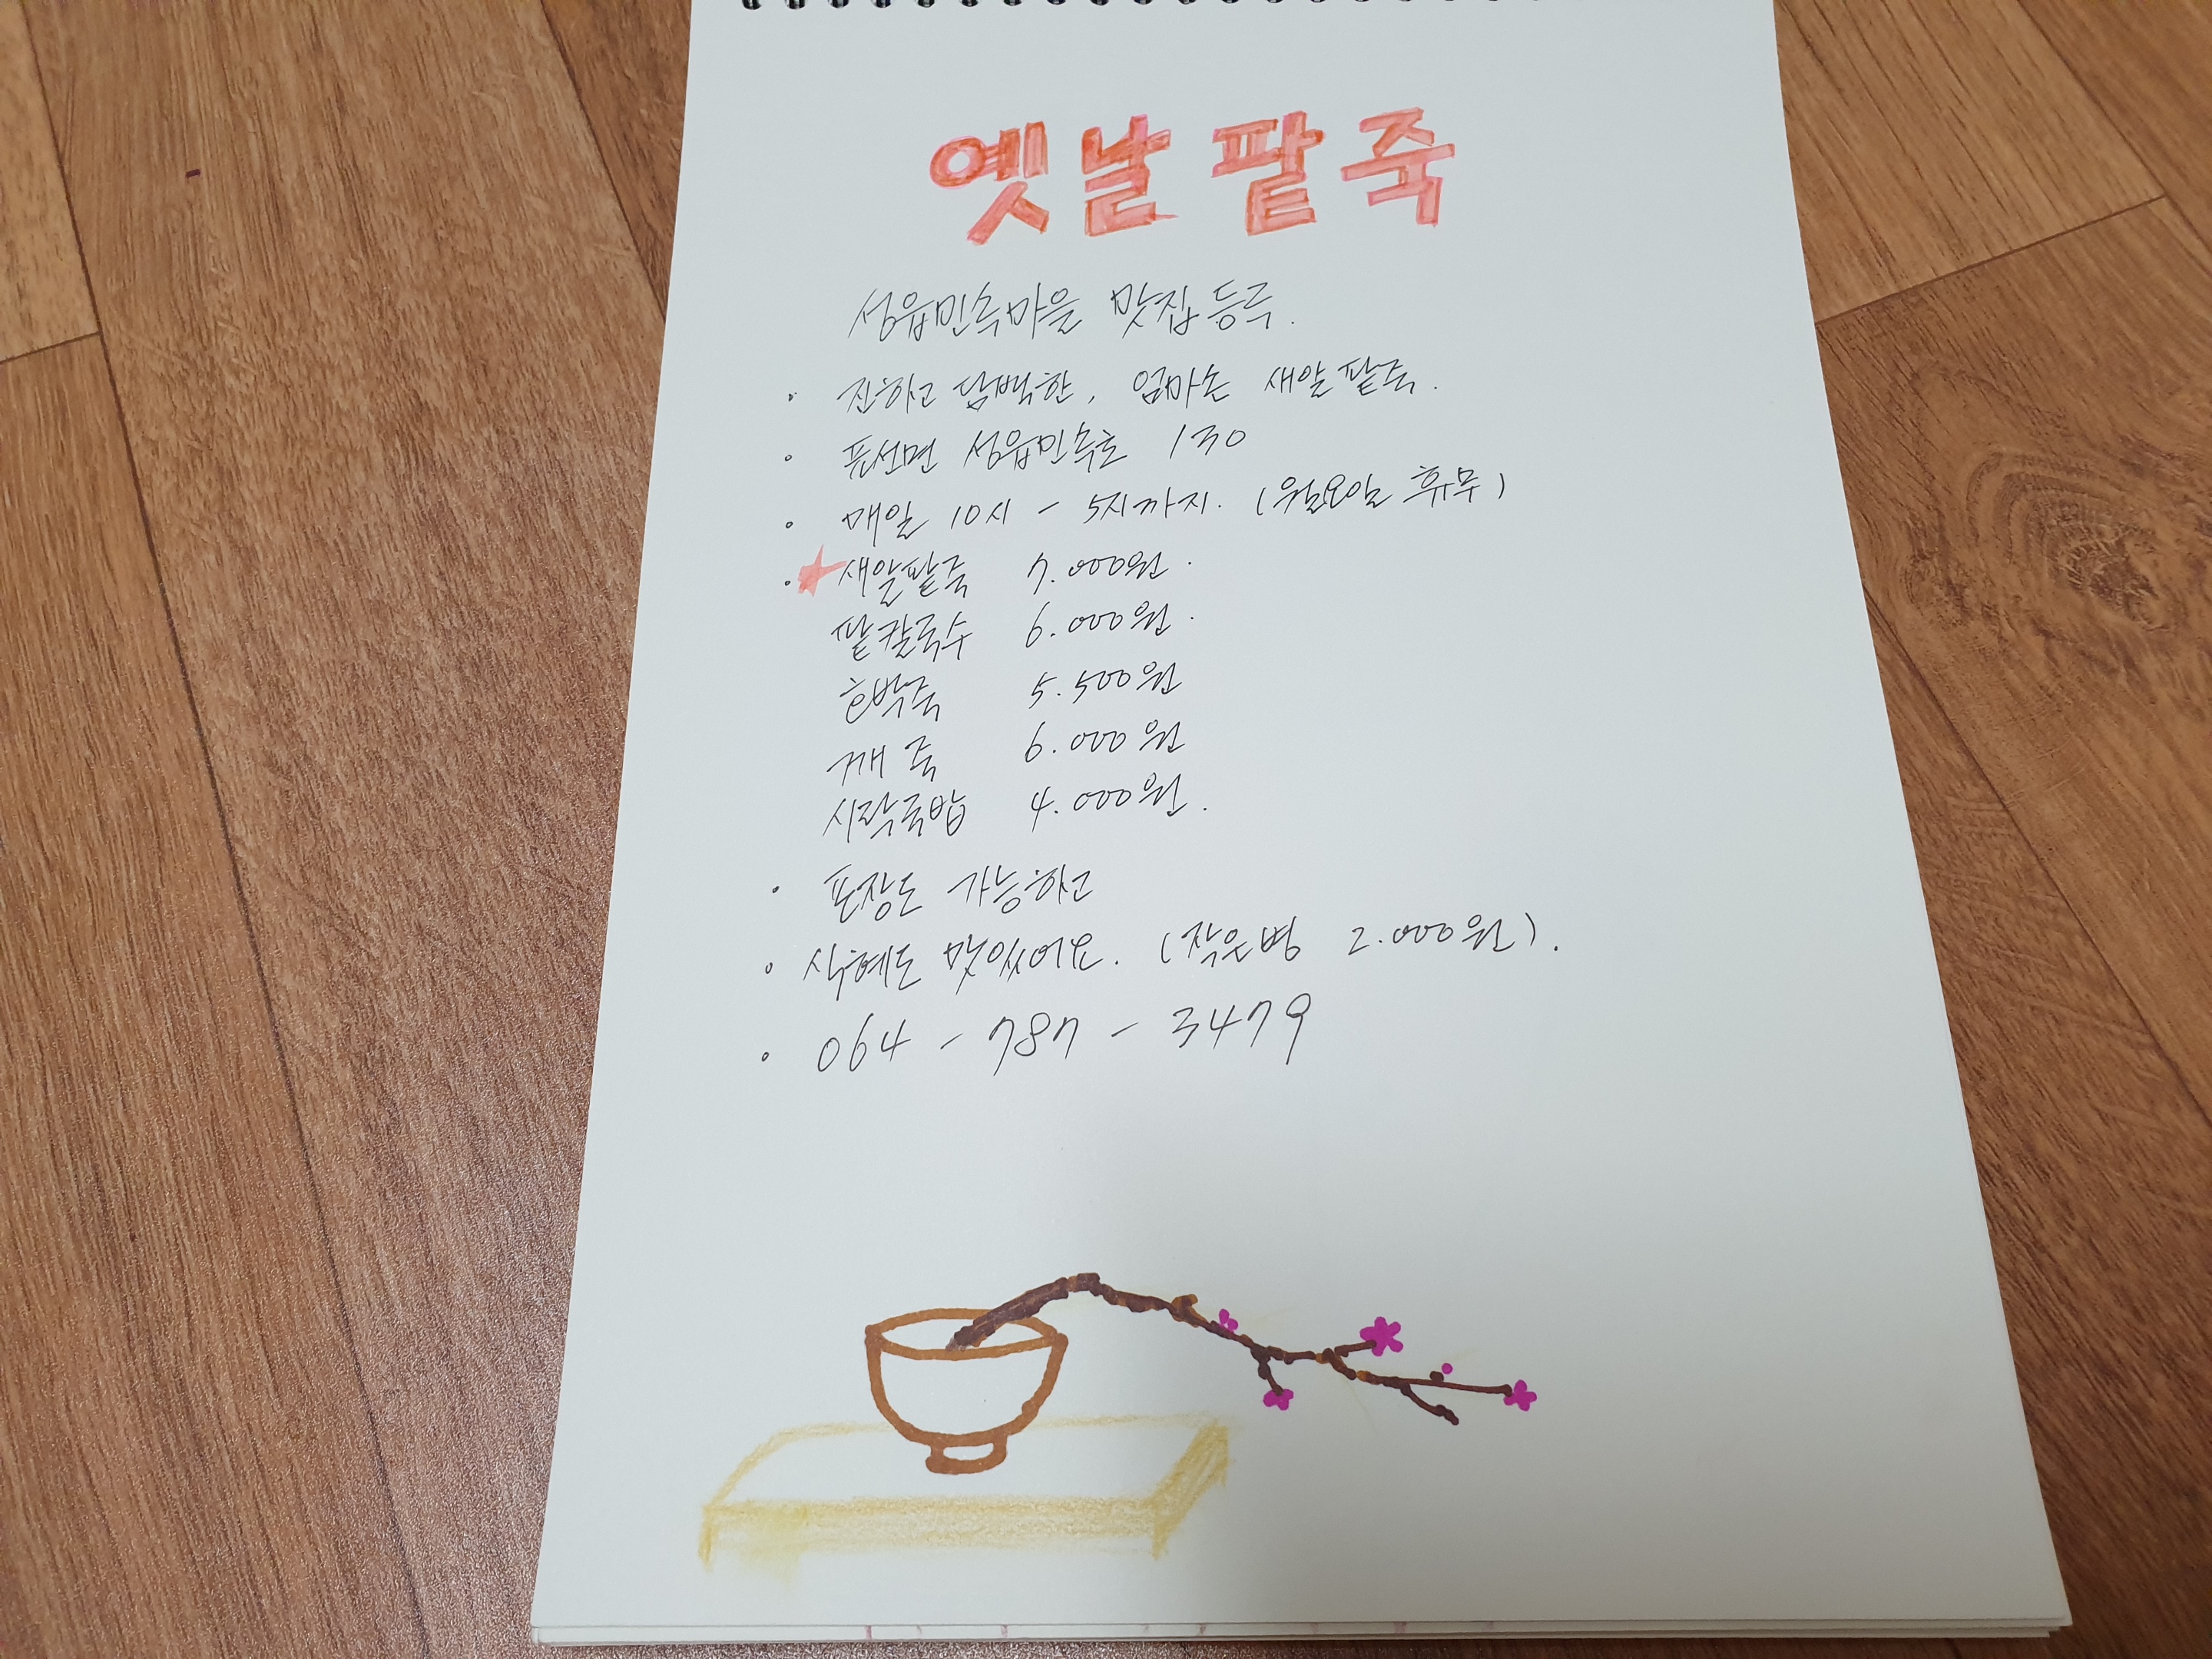 옛날팥죽
성읍민속마을 맛집등극.
진하고 담백한, 엄마손 새알팥죽.
표선면 성읍민속로 130
매일 10시 - 5시까지. (월요일 휴무)
★새알팥죽 7.000원.
팥칼국수 6.000원.
호박죽 5.500원
깨죽 6.000원
시락국밥 4.000원.
포장도 가능하고
식혜도 맛있어요. (작은병 2.000원).
064-787-3479